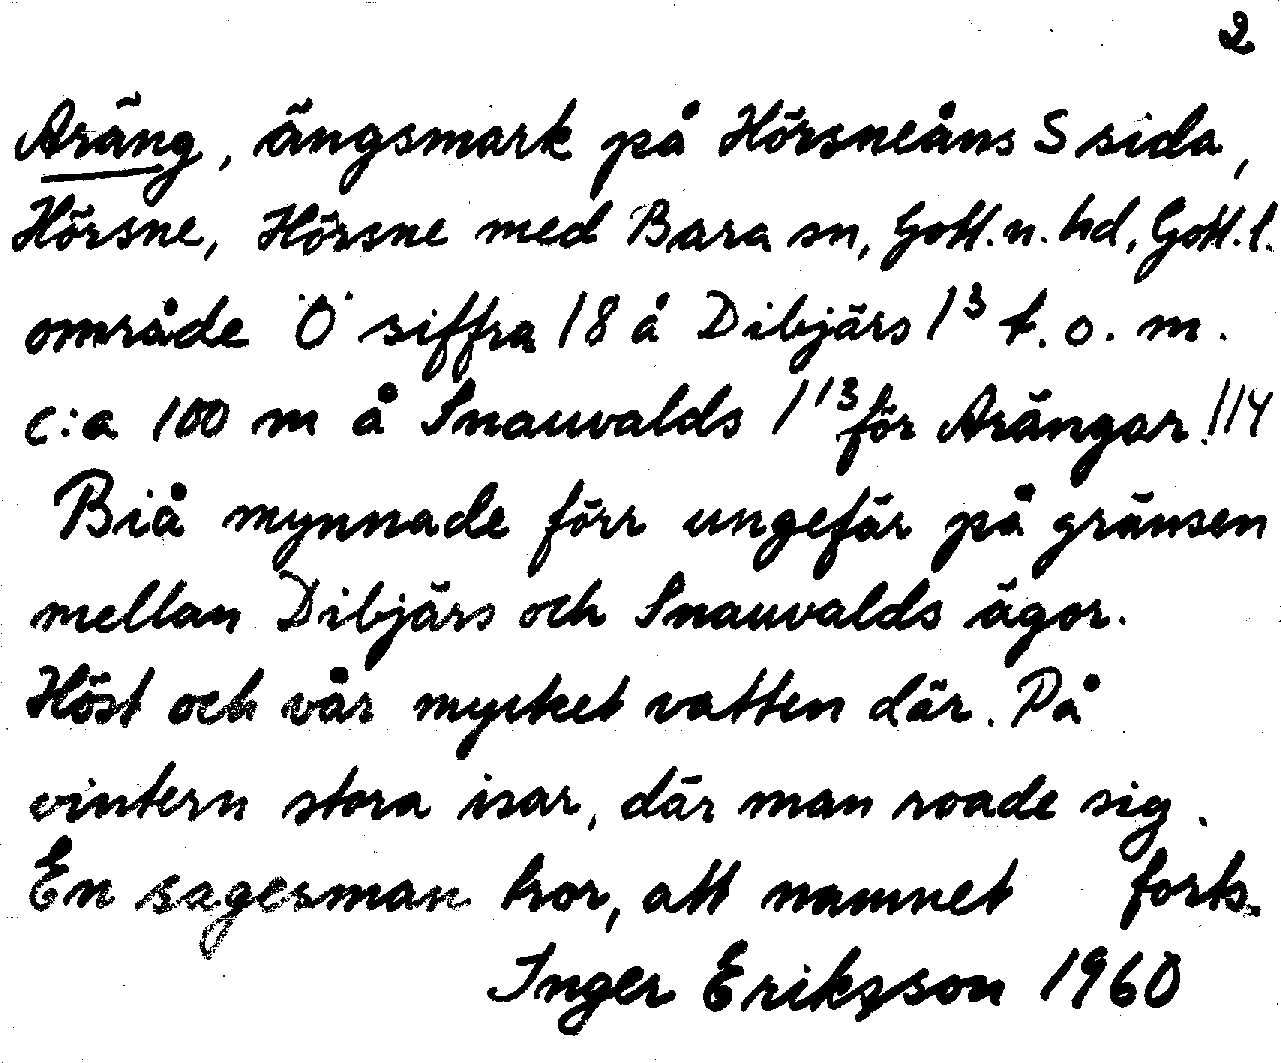 2
Aräng, ängsmark på Hörsneåns S sida,
Hörsne, Hörsne med Bara sn, Gotl. n. hd, Gotl. l.
område Ö siffra 18 å Dibjärs 1³ t.o.m.
c:a 100 m å Snauvalds 1¹³ för Arängar 114
Biå mynnade förr ungefär på gränsen
mellan Dibjärs och Snauvalds ägor.
Höst och vår mycket vatten där. På
vintern stora isar, där man roade sig.
En sagesman tror, att namnet forts.
Inger Eriksson 1960